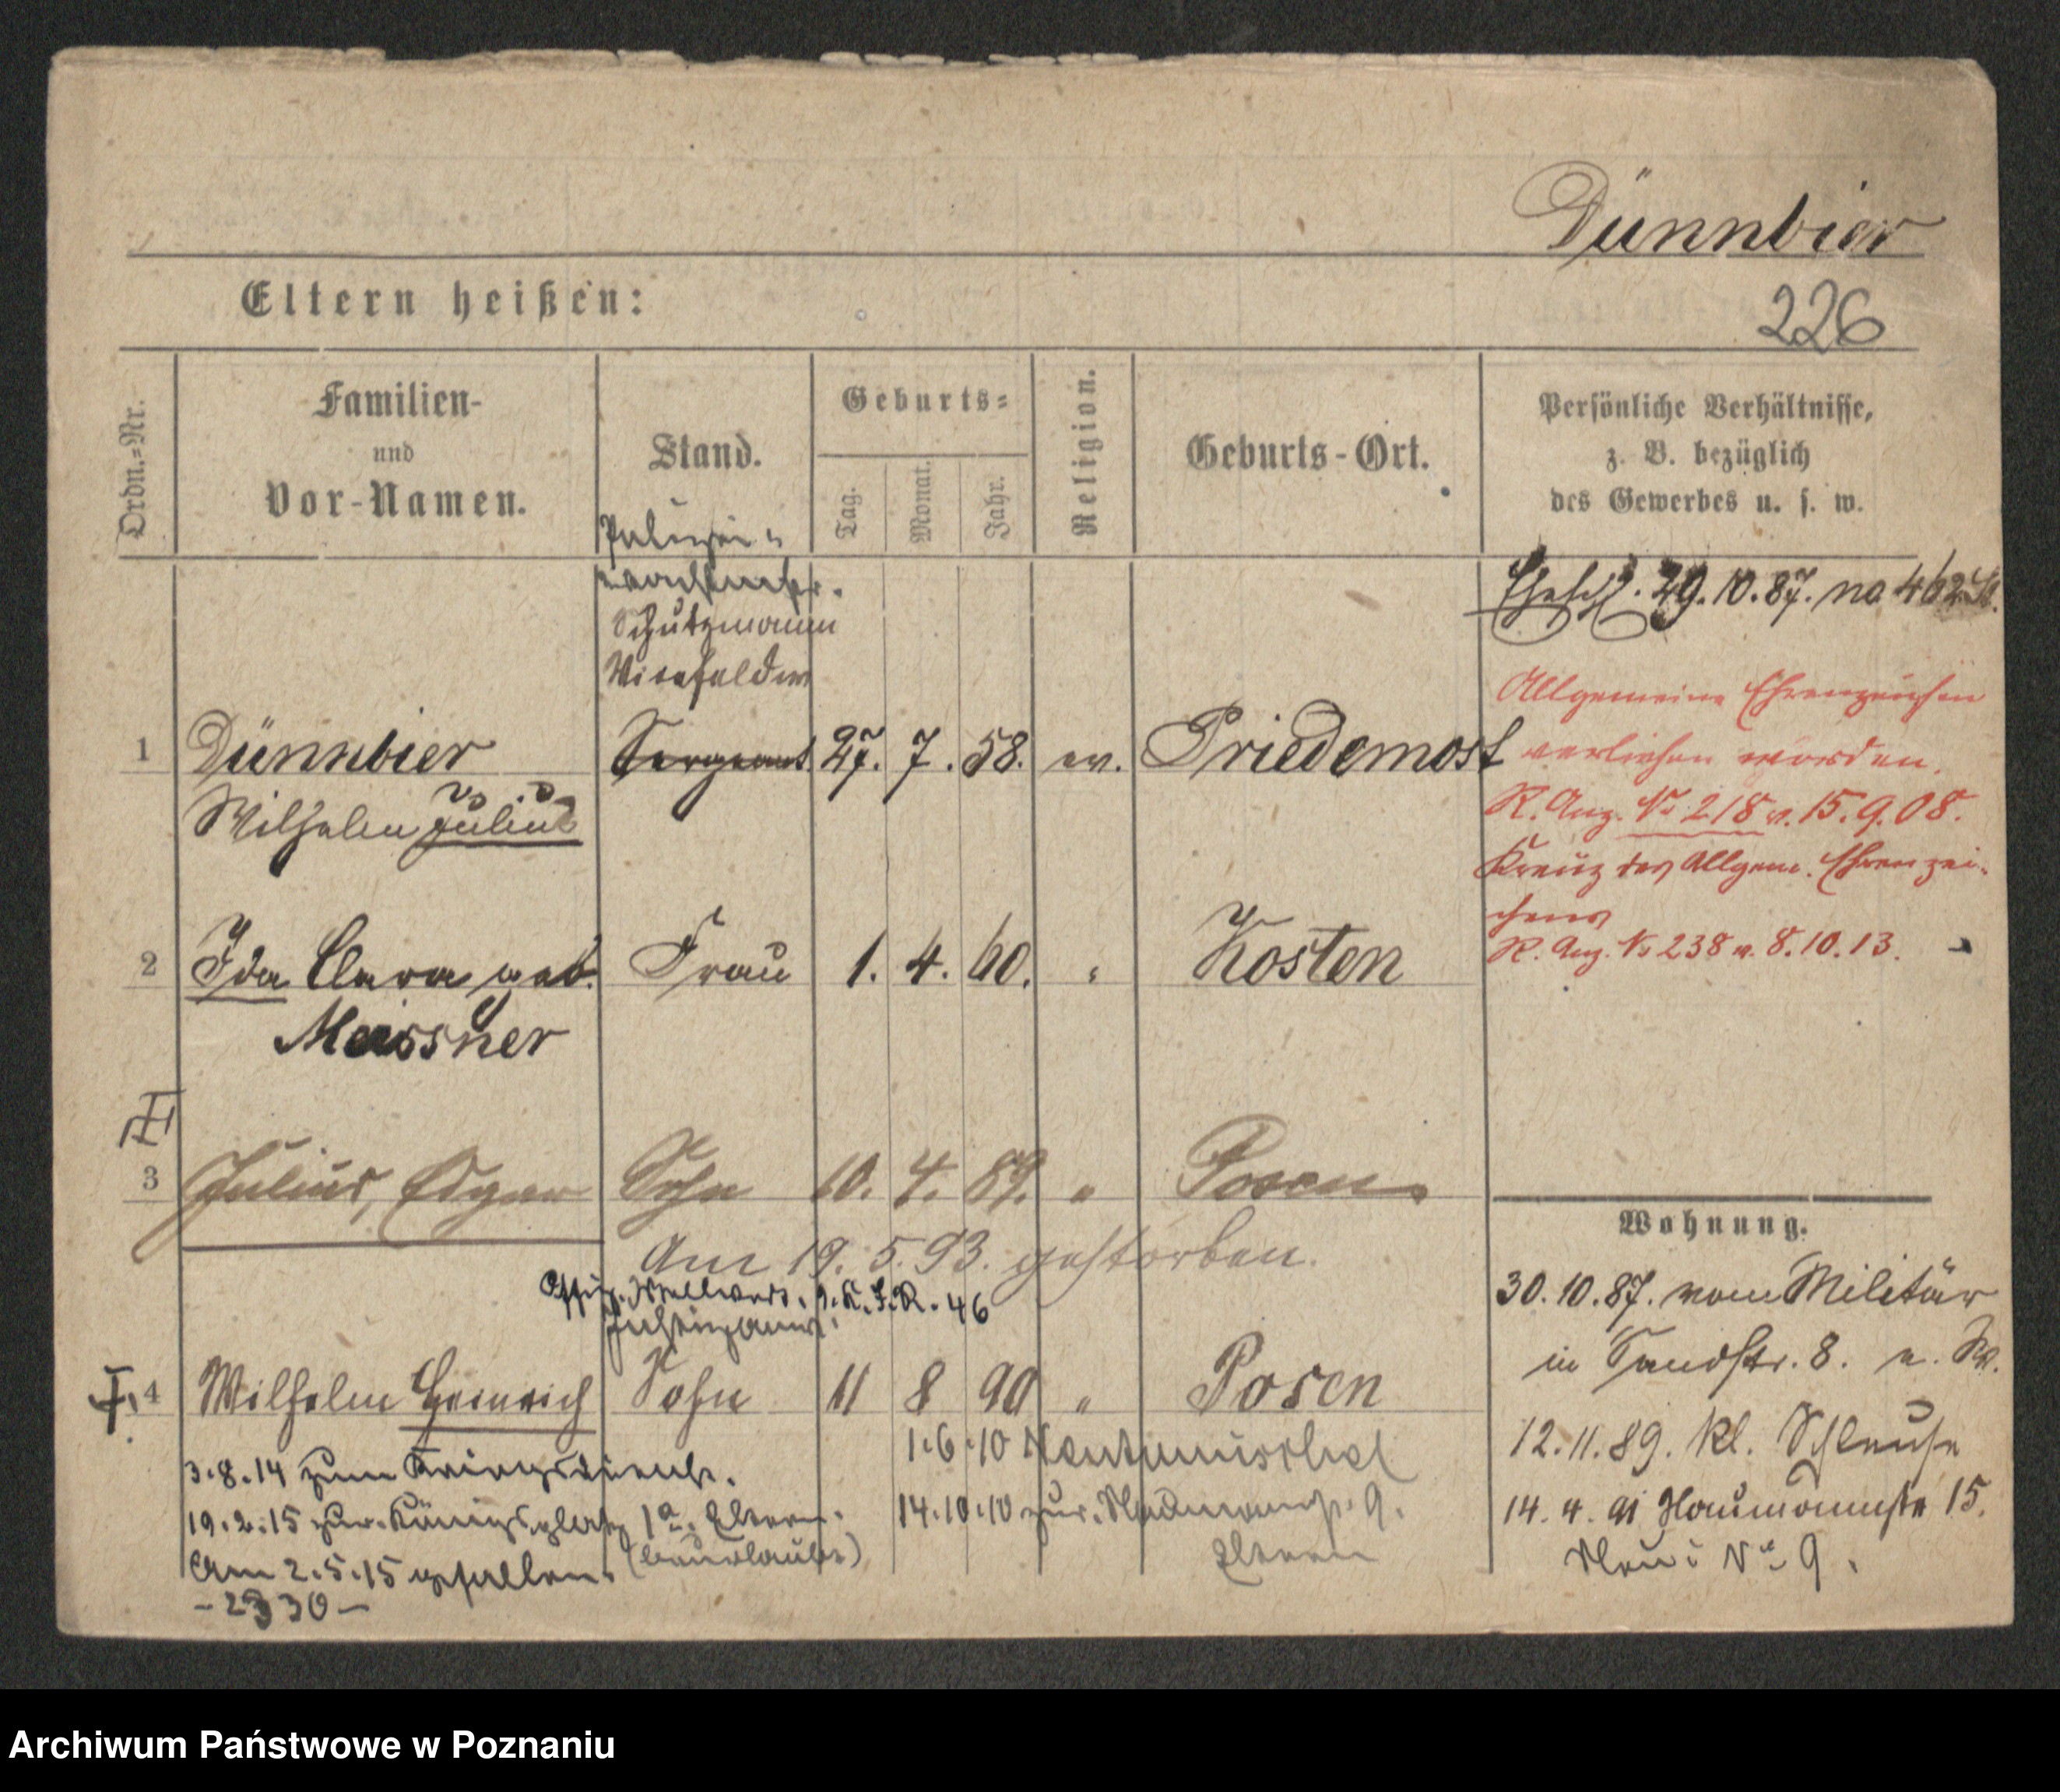 Dünnbier
226
Eltern heißen:
Ordn.=Nr.
Familien-
und
Vor-Namen.
Stand.
Geburts=
Tag.
Monat.
Jahr.
Religion.
Geburts-Ort.
Persönliche Verhältnisse,
z. B. bezüglich
des Gewerbes u. s. w.
Polizei-
wachtmstr.
Schutzmann
Vicefeldw
Ehesch. 29.10.87. no 462
Allgemeine Ehrenzeichen
verliehen worden.
R. Anz. No 218 v. 15.9.08.
Kreuz des Allgem. Ehrenzei-
chens
R. Anz. No 238 v. 8.10.13.
1 Dünnbier Sergeant 27. 7. 58. ev. Priedemost
Wilhelm Julius
2 Ida Clara geb. Frau 1. 4. 60. " Kosten
Meissner
3 Julius, Edgar Sohn 10. 4. 89. " Posen
Am 19.5.93. gestorben.
Offiz. Stellvert. I.R. 46
4 Wilhelm Heinrich Sohn 11 8 90 " Posen
1.6.10
3.8.14 zum Kriegsdienst.
14.10.10 zur. 9.
Eltern
19.2.15 zur. Königsplatz 1a. Eltern.
(beurlaubt)
Am 2.5.15 gefallen.
- 2330 -
Wohnung.
30.10.87. vom Militär
in Sandstr. 8. n. W.
12.11.89. kl. Schleuse
14. 4. 91 Naumannstr 15.
Neue No 9.
Archiwum Państwowe w Poznaniu